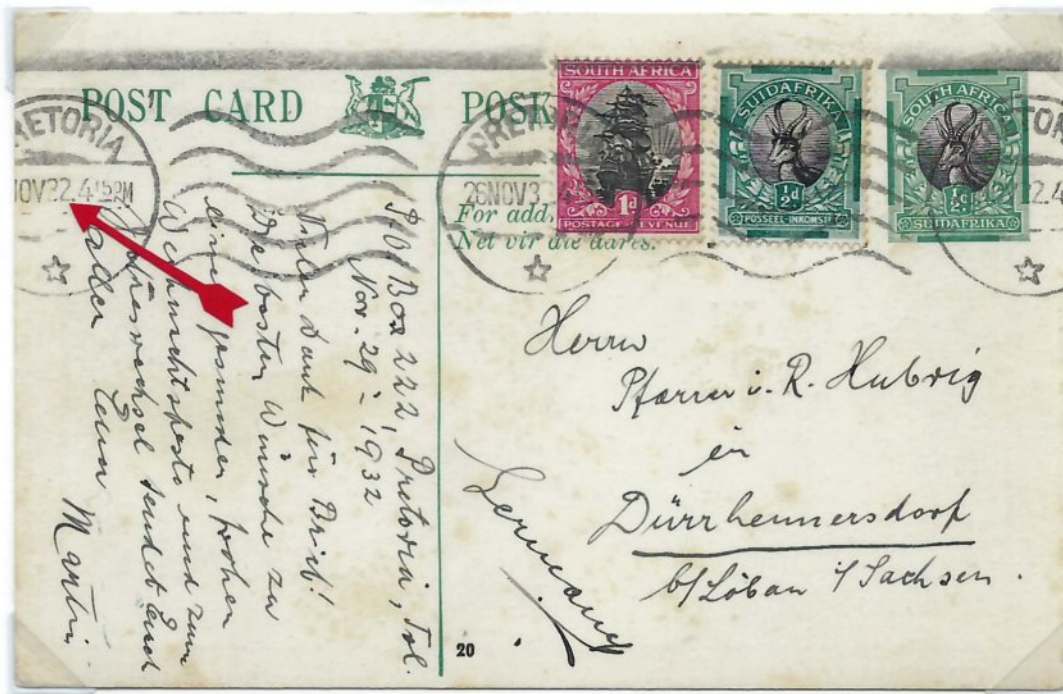 POST CARD POSK
PRETORIA
NOV 32. 4 15 PM
PRE
26 NOV 3
4
TOR
2.4
SOUTH AFRICA
1d
POSTAGE REVENUE
SUIDAFRIKA
½d
POSSEEL-INKOMSTE
SOUTH AFRICA
½d
SUIDAFRIKA
For add
Net vir die adres.
P.O. Box 222, Pretoria, Tvl.
Nov. 29 - 1932
Vielen Dank für Brief!
Die besten Wünsche zu
einem gesunden, frohen
Weihnachtsfeste und zum
Jahreswechsel sendet Euch
allen Euer Martin.
Herrn
Pfarrer i. R. Hubrig
in
Dürrhennersdorf
b/Löbau i/Sachsen.
Germany
20